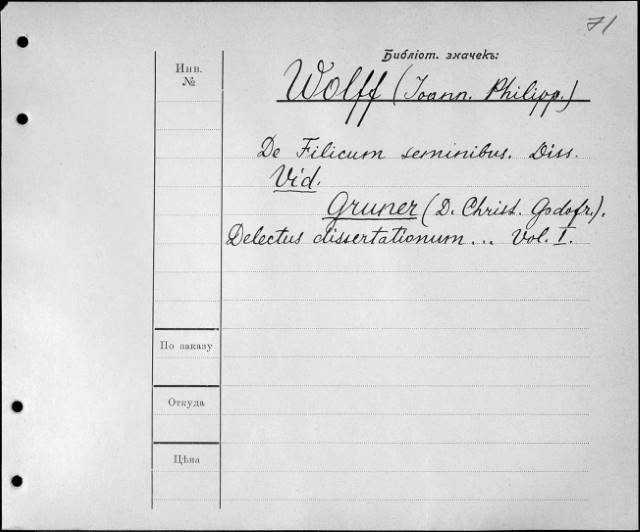 71
Библіот. значекъ:
Инв.
№
Wolff (Joann. Philipp.)
De Filicum seminibus. Diss.
Vid.
Gruner (D. Christ. Godofr.).
Delectus dissertationum... Vol. I.
По заказу
Откуда
Цѣна